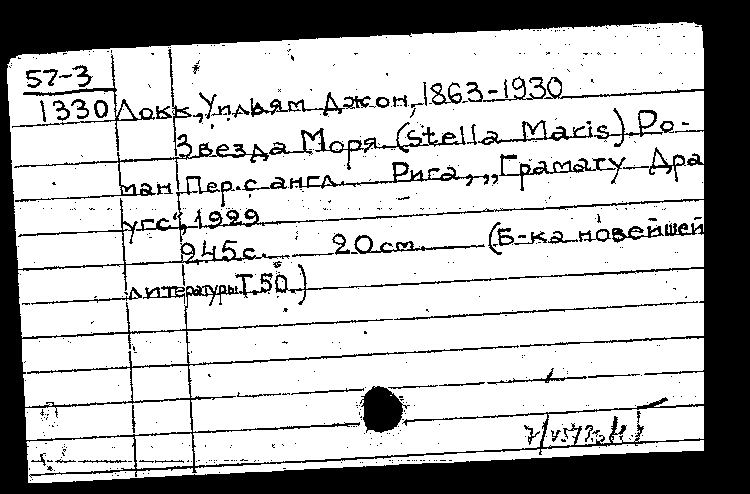 57-3
1330 Локк, Уильям Джон, 1863-1930
Звезда Моря (Stella Maris). Ро-
ман Пер. с англ. Рига, „Грамату Дра
угс“, 1929
245 с. 20 см. (Б-ка новейшей
литературы Т. 50.)